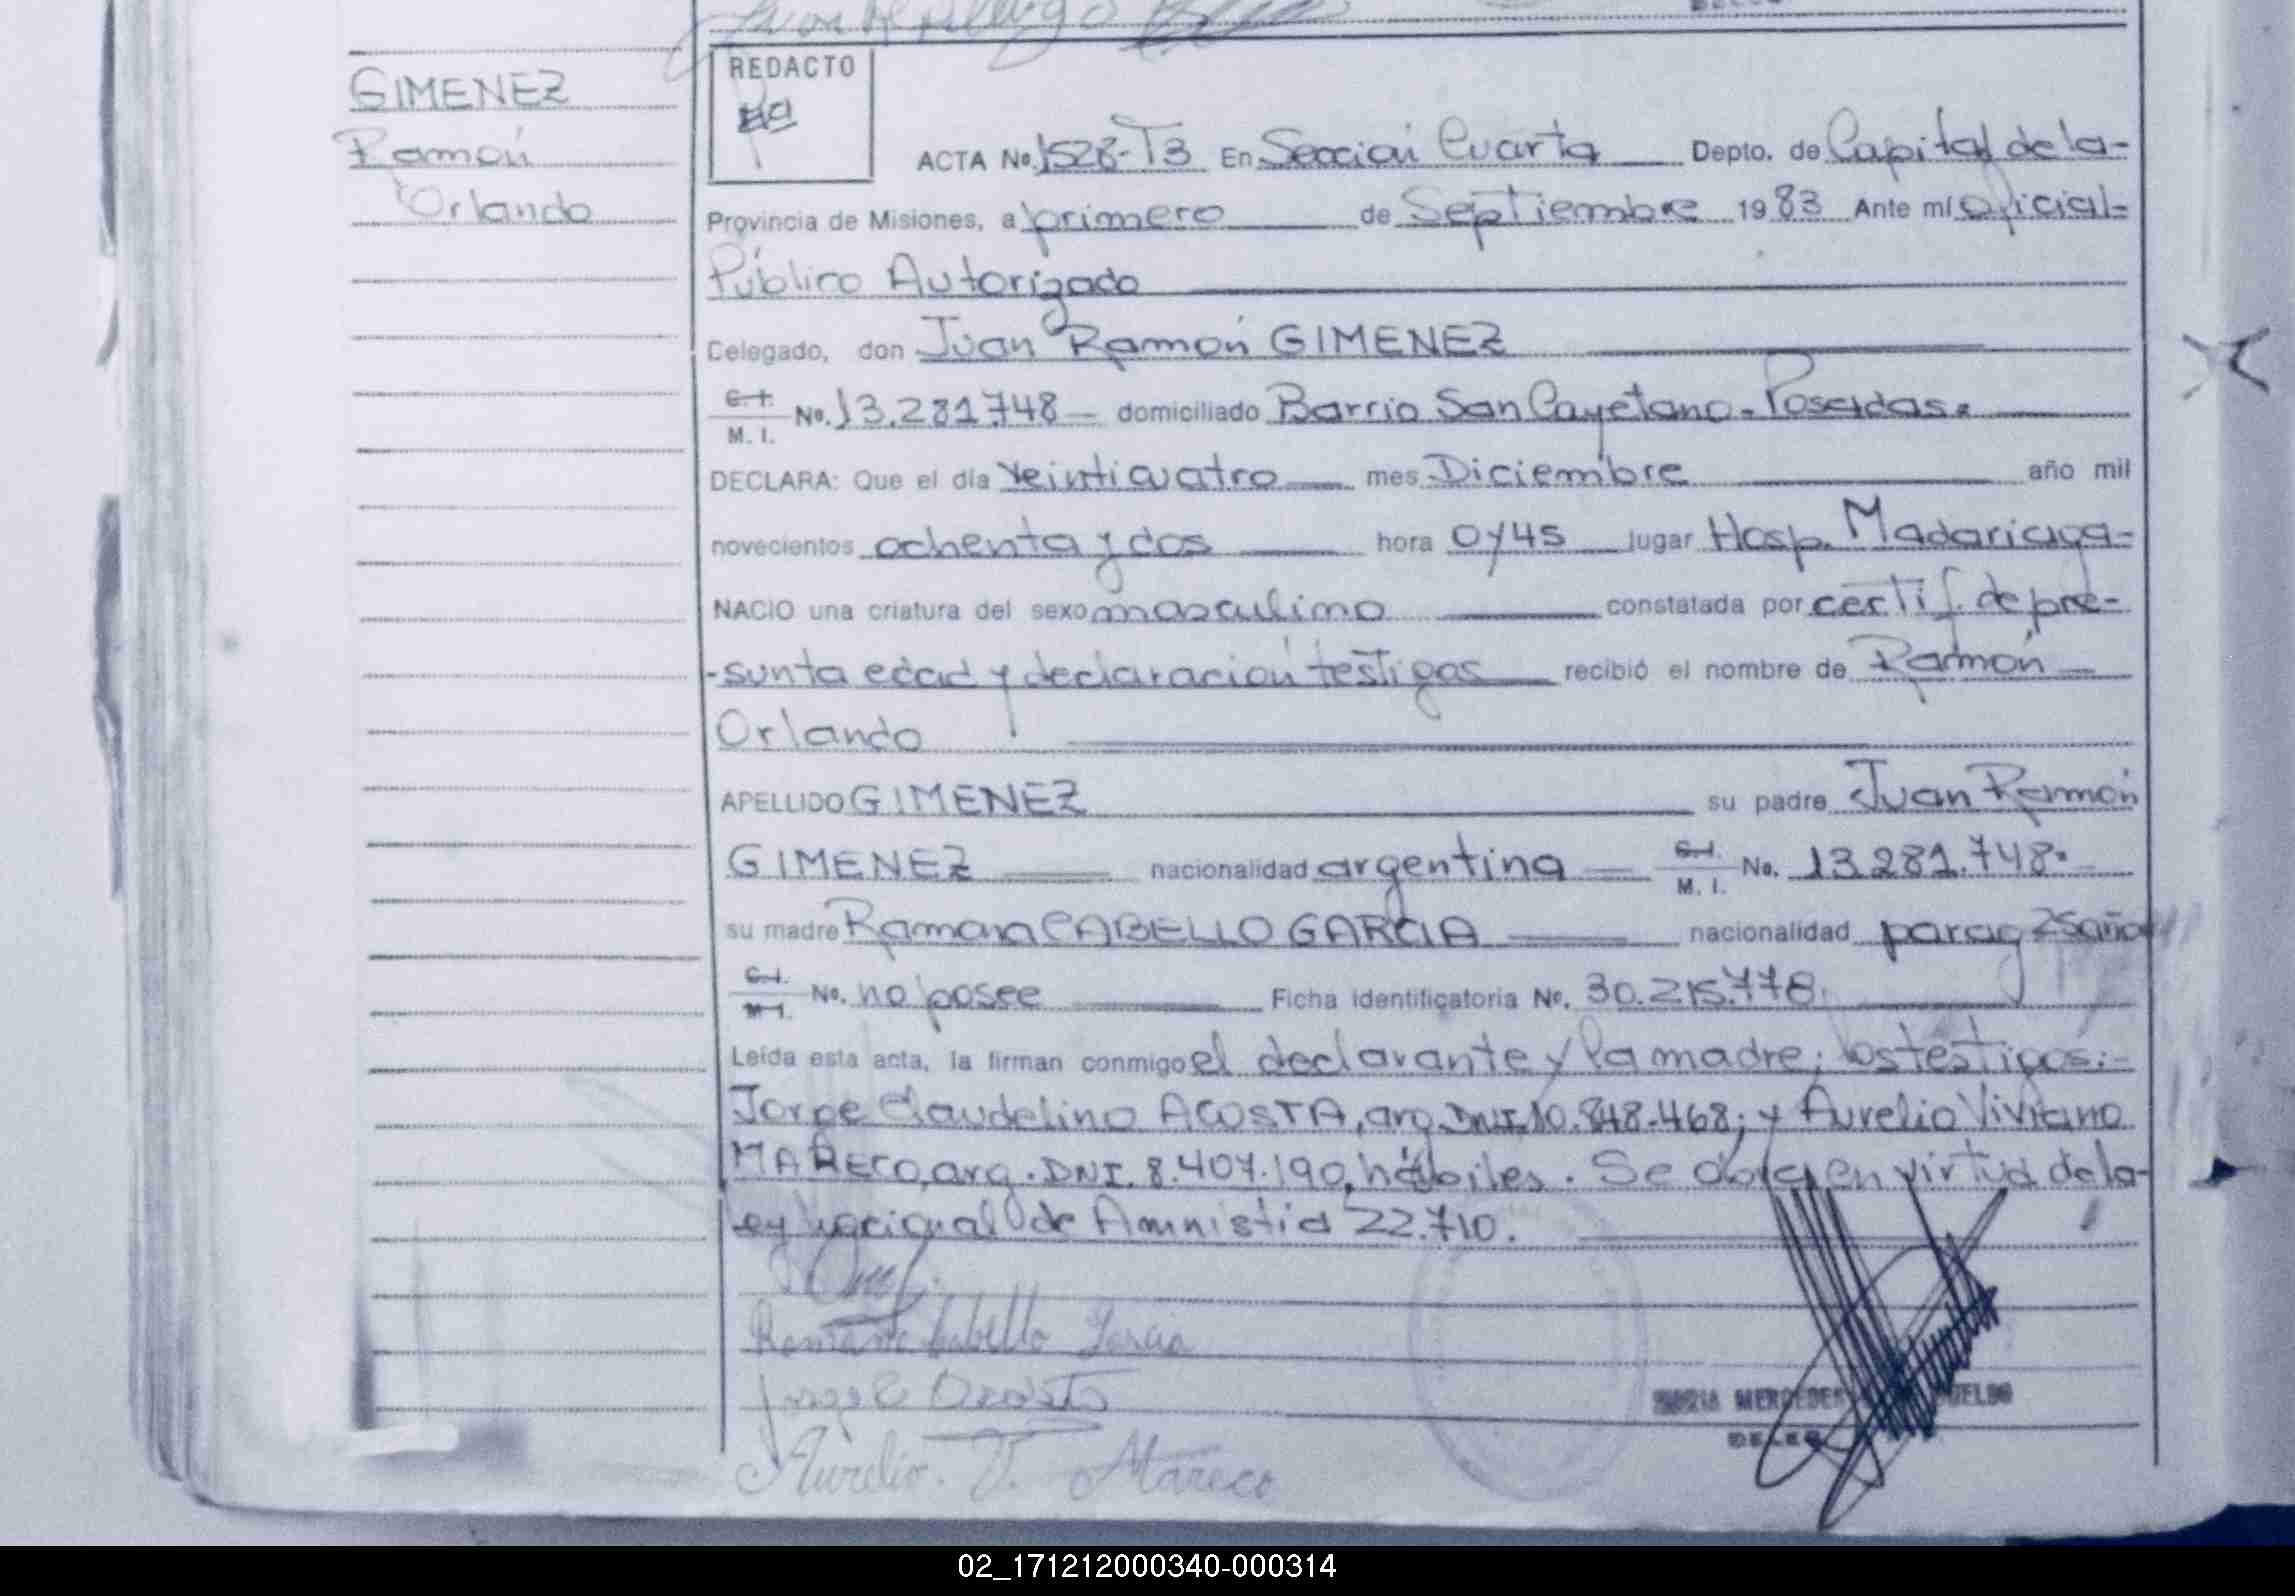 GIMENEZ
Ramón
Orlando
REDACTO
ACTA No. 1528-T3 En Sección Cuarta Depto. de Capital de la-
Provincia de Misiones, a primero de Septiembre 1983 Ante mí Oficial-
Público Autorizado
Delegado, don Juan Ramón GIMENEZ
C. I. M. I. No. 13.281.748 domiciliado Barrio San Cayetano-Posadas.
DECLARA: Que el día veinticuatro mes Diciembre año mil
novecientos ochenta y dos hora 0 y 45 lugar Hosp. Madariaga-
NACIO una criatura del sexo masculino constatada por certif. de pre-
-sunta edad y declaración testigos recibió el nombre de Ramón
Orlando
APELLIDO GIMENEZ su padre Juan Ramón
GIMENEZ nacionalidad argentina C. I. M. I. No. 13.281.748.
su madre Ramona CABELLO GARCIA nacionalidad parag 25 años
C. I. M. I. No. no posee Ficha identificatoria No. 30.215.778.
Leída esta acta, la firman conmigo el declarante y la madre; los testigos:-
Jorge Claudelino ACOSTA, arg. DNI. 10.848.468; y Aurelio Viviano
MARECO, arg. DNI. 8.407.190, hábiles. Se obra en virtud de la-
ley nacional de Amnistia 22.710.
Ramona Cabello Garcia
Jorge C Acosta
MARIA MERCEDES
Aurelio. V. Mareco
02_171212000340-000314